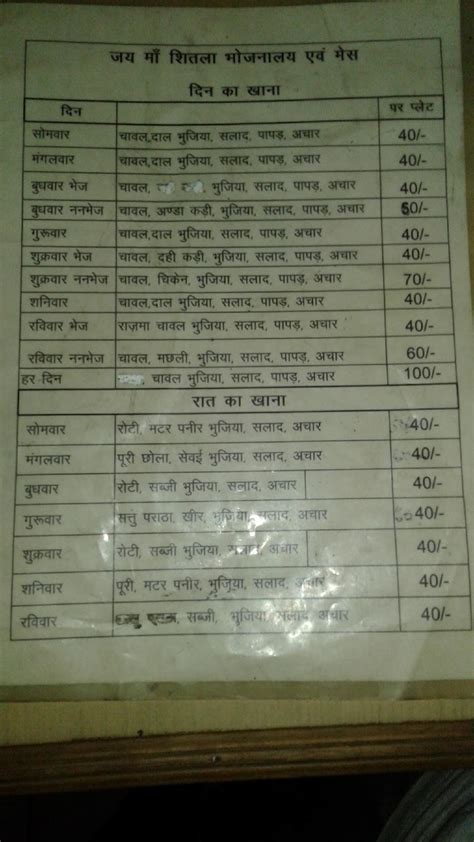 जय माँ शितला भोजनालय एवं मेस
दिन का खाना
दिन पर प्लेट
सोमवार चावल,दाल भुजिया, सलाद, पापड़, अचार 40/-
मंगलवार चावल,दाल भुजिया, सलाद, पापड़, अचार 40/-
बुधवार भेज चावल, भुजिया, सलाद, पापड़, अचार 40/-
बुधवार ननभेज चावल, अण्डा कड़ी, भुजिया, सलाद, पापड़, अचार 50/-
गुरूवार चावल,दाल भुजिया, सलाद, पापड़, अचार 40/-
शुक्रवार भेज चावल, दही कड़ी, भुजिया, सलाद, पापड़, अचार 40/-
शुक्रवार ननभेज चावल, चिकेन, भुजिया, सलाद, पापड़, अचार 70/-
शनिवार चावल,दाल भुजिया, सलाद, पापड़, अचार 40/-
रविवार भेज राज़मा चावल भुजिया, सलाद, पापड़, अचार 40/-
रविवार ननभेज चावल, मछली, भुजिया, सलाद, पापड़, अचार 60/-
हर दिन चावल भुजिया, सलाद, पापड़, अचार 100/-
रात का खाना
सोमवार रोटी, मटर पनीर भुजिया, सलाद, अचार 40/-
मंगलवार पूरी छोला, सेवई भुजिया, सलाद, अचार 40/-
बुधवार रोटी, सब्जी भुजिया, सलाद, अचार 40/-
गुरूवार सत्तु पराठा, खीर, भुजिया, सलाद, अचार 40/-
शुक्रवार रोटी, सब्जी भुजिया, सलाद, अचार 40/-
शनिवार पूरी, मटर पनीर, भुजिया, सलाद, अचार 40/-
रविवार सब्जी, भुजिया, सलाद, अचार 40/-